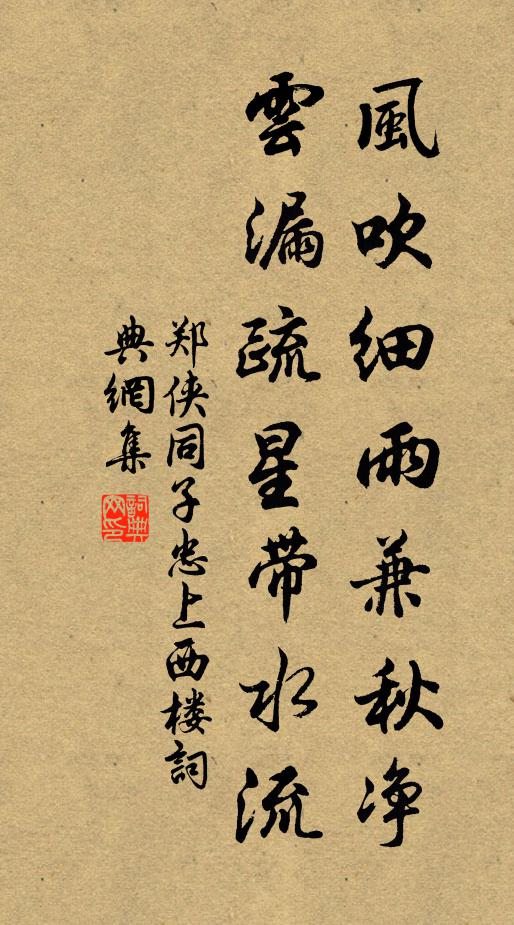 風吹细雨兼秋净
雲漏疏星帶水流
郑侠同子忠上西楼詞
典網集
詞典
网印